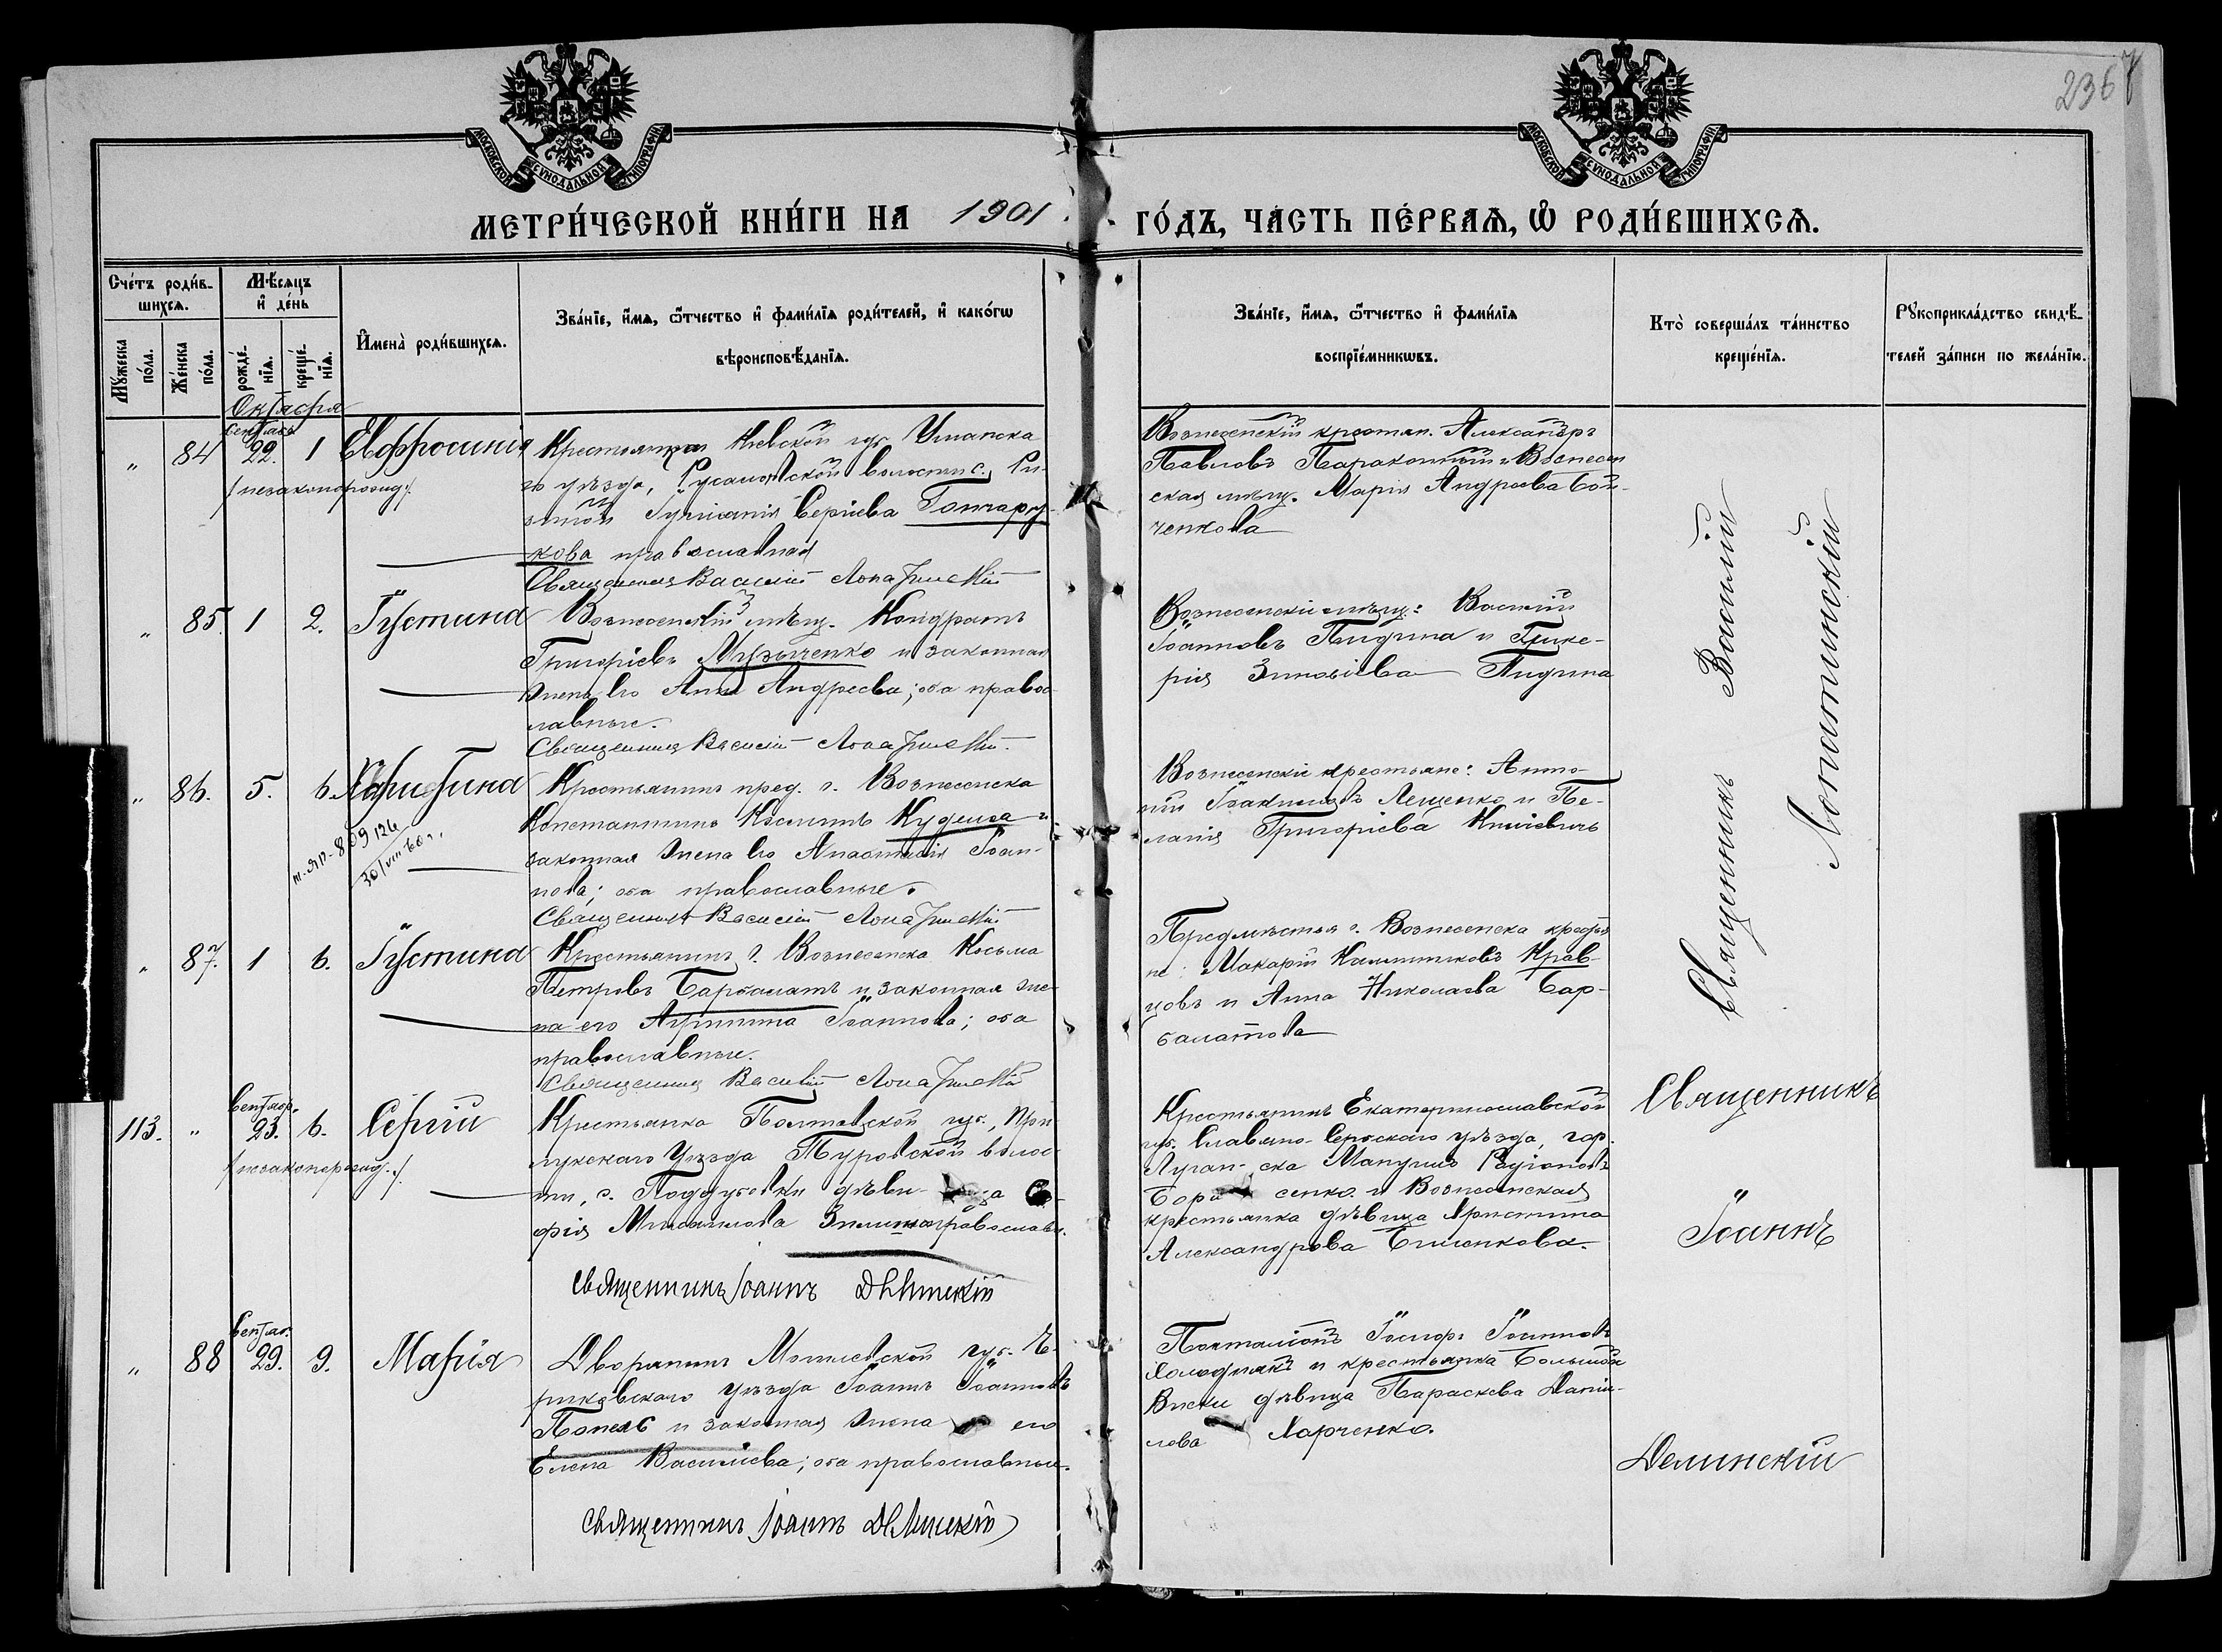 2367
МОСКОВСКОЙ СѴНОДАЛЬНОЙ ТИПОГРАФІИ
МОСКОВСКОЙ СѴНОДАЛЬНОЙ ТИПОГРАФІИ
МЕТРИ́ЧЕСКОЙ КНИ́ГИ НА 1901. ГО́ДЪ, ЧА́СТЬ ПЕ́РВАѦ, Ѡ҆ РОДИ́ВШИХСѦ.
Счетъ роди́в-
шихсѧ.
Мꙋ́жеска по́ла.
Же́нска по́ла.
Мѣ́сѧцъ
и҆ де́нь
рожде́-
нїѧ.
креще́-
нїѧ.
И҆мена̀ роди́вшихсѧ.
Зва́нїе, и҆́мѧ, ѻ҆́тчество и҆ фами́лїѧ роди́телей, и҆ како́гѡ
вѣроисповѣ́данїѧ.
Зва́нїе, и҆́мѧ, ѻ҆́тчество и҆ фами́лїѧ
воспрїе́мникѡвъ.
Кто̀ соверша́лъ та́инство
креще́нїѧ.
Рꙋкоприкла́дство свидѣ́-
телей за́писи по жела́нїю.
Октября
„ 84 Сентяб. 22. 1 Евфросинія
/незаконорожд/.
Крестьянка Кіевской губ. Уманска
го уѣзда, Русаловской волости с. Ри-
жой Іуліанія Сергіева Гончару-
кова православная
Священникъ Василій Лопатинскій
Вознесенскій крестьян. Александръ
Павловъ и Вознесен
ская мѣщ. Марія Андреева Бой-
ченкова
„ 85. 1 2. Іустина
Вознесенскій мѣщ. Кондратъ
Григоріевъ Музыченко и законная
жена его Анна Андреева; оба правос
лавные.
Священникъ Василій Лопатинскій.
Вознесенскіе мѣщ: Василій
Іоанновъ Пидгина и Глике-
рія Зиновіева Пидгина
„ 86. 5. 6. Харитина
30/VIII 60 г.
Крестьянинъ пред. г. Вознесенска
Константинъ Косминъ Куделя и
законная жена его Анастасія Іоан-
нова; оба православные.
Священникъ Василій Лопатинскій
Вознесенскіе крестьяне: Анто-
ній Іоакимовъ Лещенко и Пе-
лагія Григоріева Книевичъ
„ 87. 1 6. Іустина
Крестьянинъ г. Вознесенска Косьма
Петровъ Барбалатъ и законная же-
на его Агрипина Іоаннова; оба
православные.
Священникъ Василій Лопатинскій
Предмѣстья г. Вознесенска крестья
не: Макарій Каллиниковъ Крав-
цовъ и Анна Николаева Бар-
балатова
Священникъ Василій
Лопатинскій
113. „ Сентябр. 23. 6. Сергій
/незаконорожд./.
Крестьянка Полтавской губ., При
лукскаго Уѣзда Туровской волос
ти, с. Поддубовки дѣви-ца Со-
фія Михаилова православн.
Священникъ Іоаннъ Делинскій
Крестьянинъ Екатеринославской
губ. Славяно-Сербскаго уѣзда, гор.
Луган-ска Мануилъ Родіоновъ
Бори сенко. и Вознесенская
крестьянка дѣвица Христина
Александрова Биленкова.
Священникъ
Іоаннъ
Делинскій
„ 88 Сентяб. 29. 9. Марія
Дворянинъ Могилевской губ. Че-
риковскаго Уѣзда Іоаннъ Іоанновъ
Попель и законная жена его
Елена Василіева; оба православные.
Священникъ Іоаннъ Делинскій
Почталіонъ Іосифъ Іоанновъ
Холоднякъ и крестьянка Большой
Виски дѣвица Параскева Даніи-
лова Харченко.